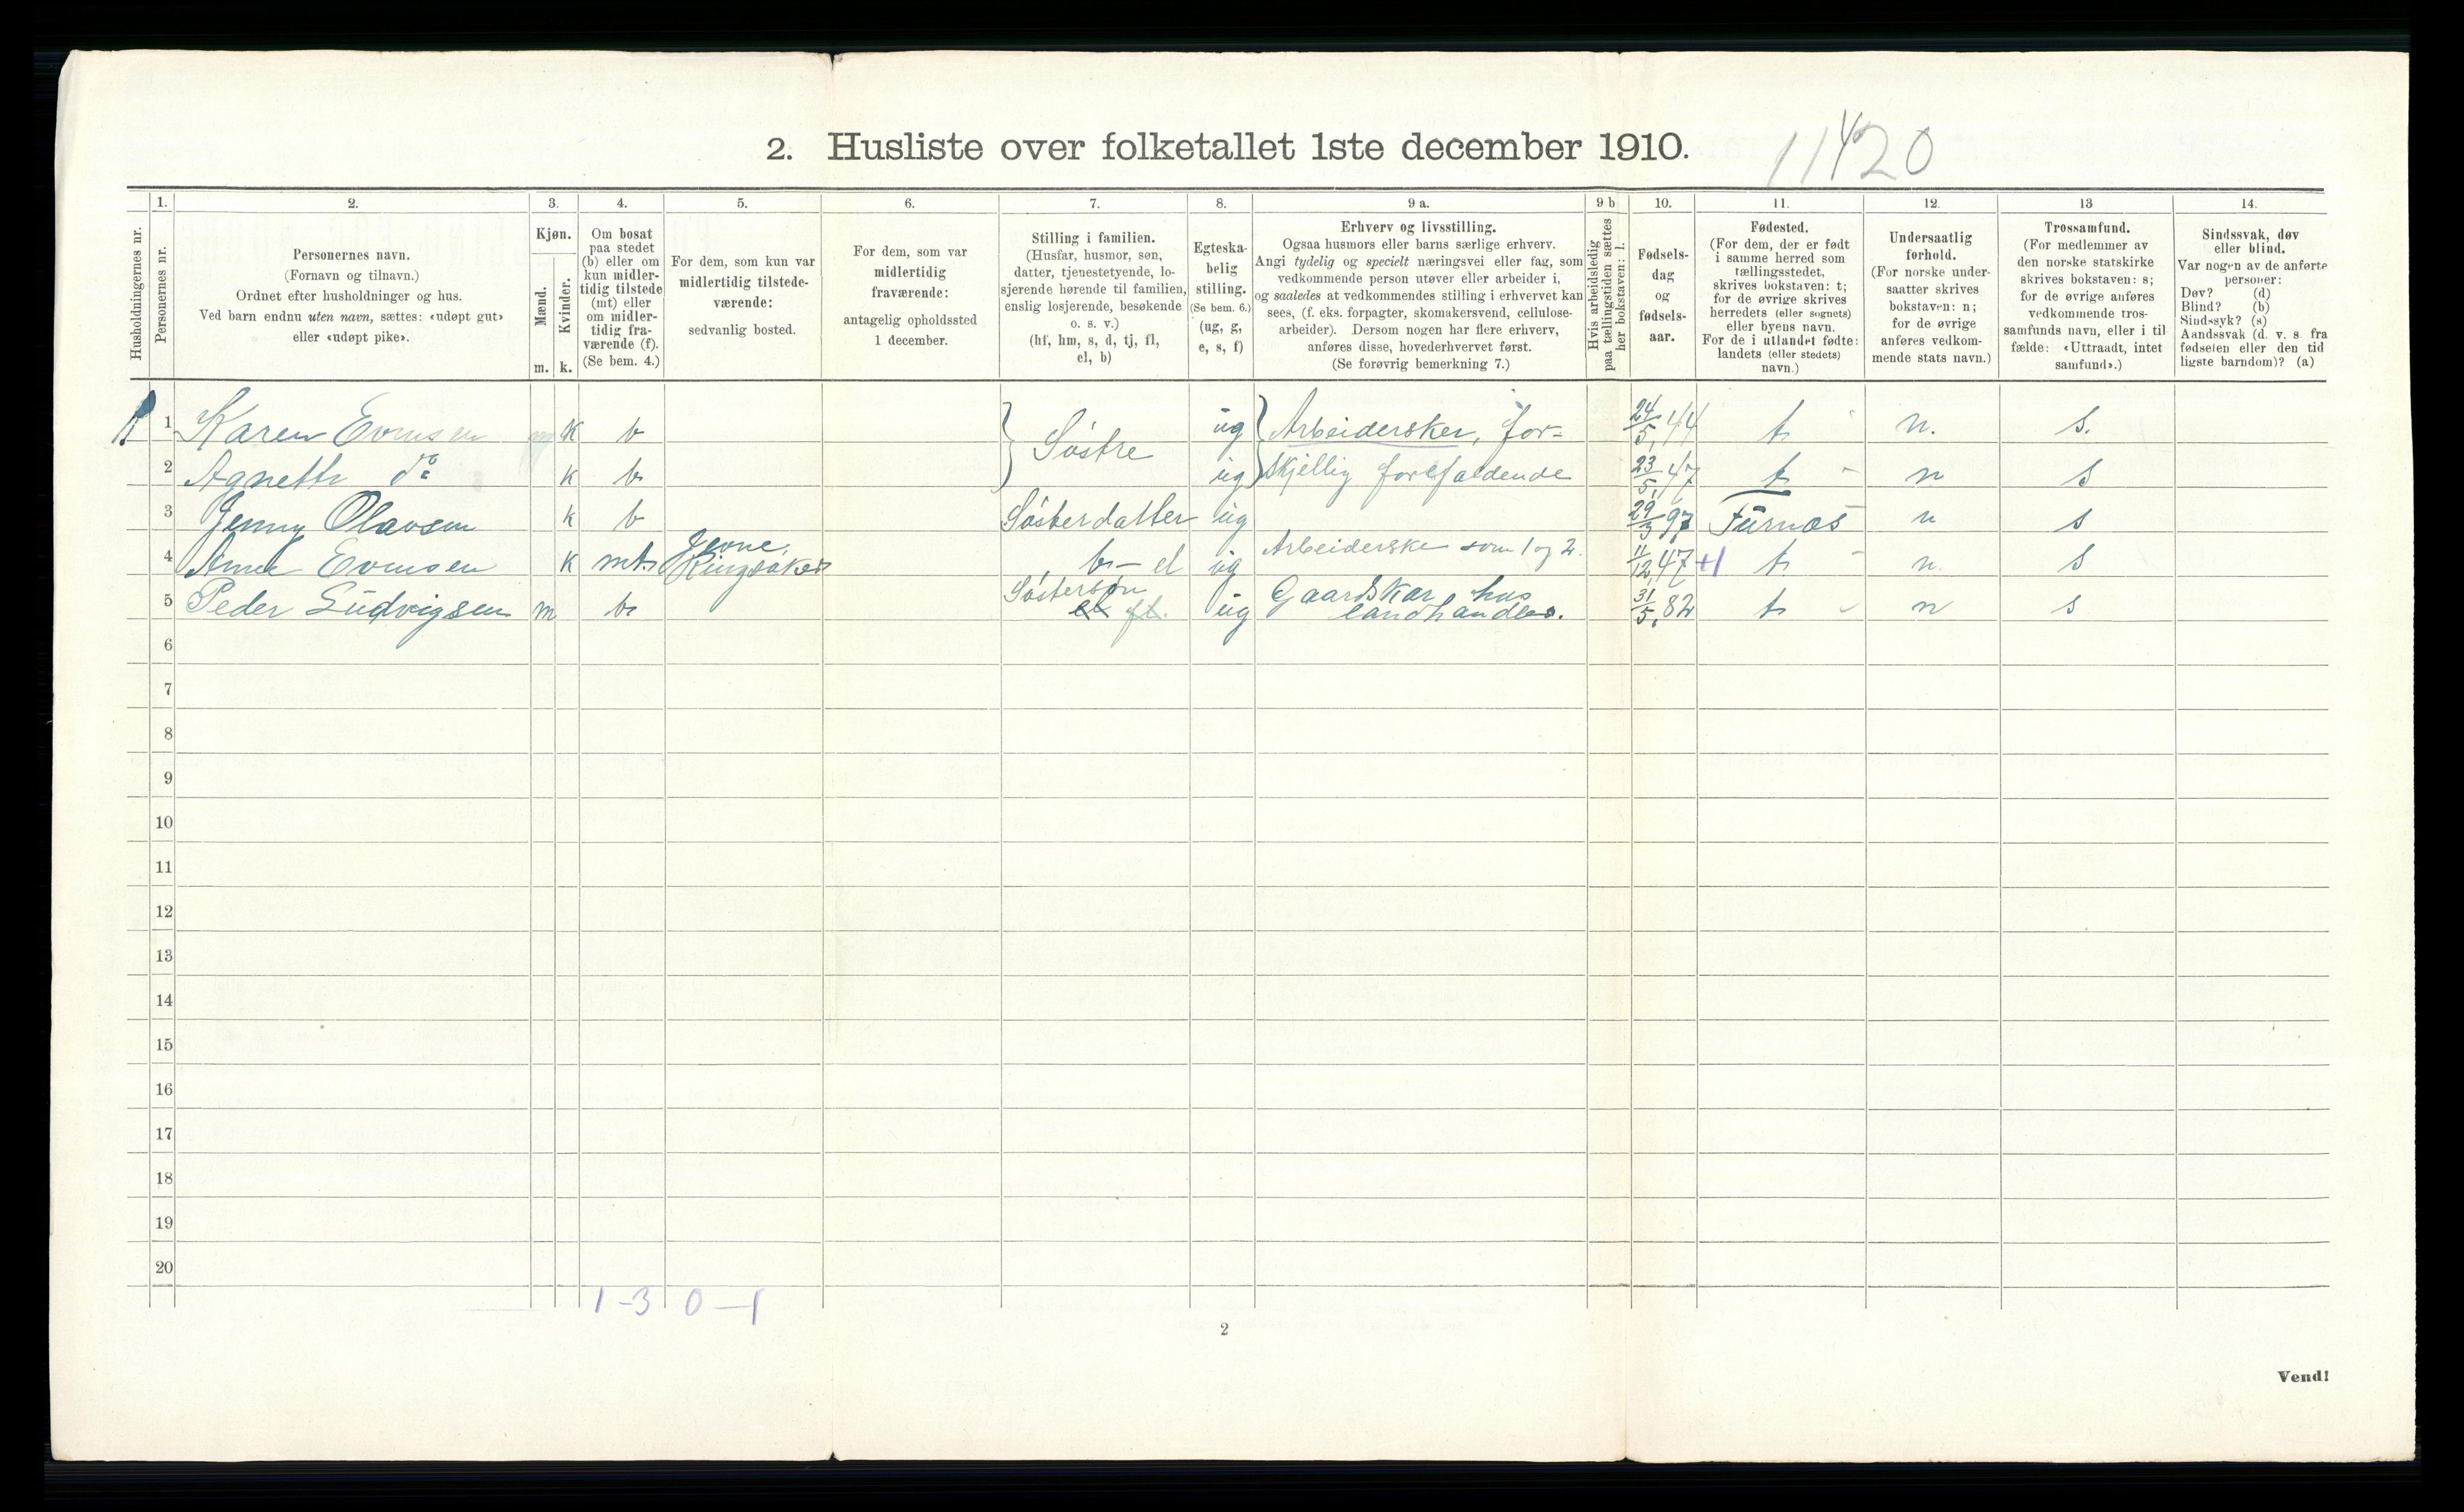 2. Husliste over folketallet 1ste december 1910.
11420
Husholdningernes nr.
1.
Personernes nr.
2.
Personernes navn.
(Fornavn og tilnavn.)
Ordnet efter husholdninger og hus.
Ved barn endnu uten navn, sættes: «udøpt gut»
eller «udøpt pike».
3.
Kjøn.
Mænd.
Kvinder.
m. k.
4.
Om bosat
paa stedet
(b) eller om
kun midler-
tidig tilstede
(mt) eller
om midler-
tidig fra-
værende (f).
(Se bem. 4.)
5.
For dem, som kun var
midlertidig tilstede-
værende:
sedvanlig bosted.
6.
For dem, som var
midlertidig
fraværende:
antagelig opholdssted
1 december.
7.
Stilling i familien.
(Husfar, husmor, søn,
datter, tjenestetyende, lo-
sjerende hørende til familien,
enslig losjerende, besøkende
o. s. v.)
(hf, hm, s, d, tj, fl,
el, b)
8.
Egteska-
belig
stilling.
(Se bem. 6.)
(ug, g,
e, s, f)
9 a.
Erhverv og livsstilling.
Ogsaa husmors eller barns særlige erhverv.
Angi tydelig og specielt næringsvei eller fag, som
vedkommende person utøver eller arbeider i,
og saaledes at vedkommendes stilling i erhvervet kan
sees, (f. eks. forpagter, skomakersvend, cellulose-
arbeider). Dersom nogen har flere erhverv,
anføres disse, hovederhvervet først.
(Se forøvrig bemerkning 7.)
9 b
Hvis arbeidsledig
paa tællingstiden sættes
her bokstaven: l.
10.
Fødsels-
dag
og
fødsels-
aar.
11.
Fødested.
(For dem, der er født
i samme herred som
tællingsstedet,
skrives bokstaven: t;
for de øvrige skrives
herredets (eller sognets)
eller byens navn.
For de i utlandet fødte:
landets (eller stedets)
navn.)
12.
Undersaatlig
forhold.
(For norske under-
saatter skrives
bokstaven: n;
for de øvrige
anføres vedkom-
mende stats navn.)
13
Trossamfund.
(For medlemmer av
den norske statskirke
skrives bokstaven: s;
for de øvrige anføres
vedkommende tros-
samfunds navn, eller i til
fælde: «Uttraadt, intet
samfund».)
14.
Sindssvak, døv
eller blind.
Var nogen av de anførte
personer:
Døv? (d)
Blind? (b)
Sindssyk? (s)
Aandssvak (d. v. s. fra
fødselen eller den tid
ligste barndom)? (a)
1 Karen Evensen k b Søstre ug Arbeidersker, for- 24/5,44 t n. s.
2 Agnethe do k b ug skjellig forefaldende 23/5,47 t n s
3 Jenny Olavsen k b Søsterdatter ug 29/3 97 Furnæs n s
4 Anne Evensen k mt. Jevne, Ringsaker b - el ug Arbeiderske som 1 og 2. 11/12,47 +1 t n. s
5 Peder Ludvigsen m b Søstersøn el fl. ug Gaardskar hos landhandler. 31/5,82 t n s
6
7
8
9
10
11
12
13
14
15
16
17
18
19
20
1-3 0-1
2
Vend!